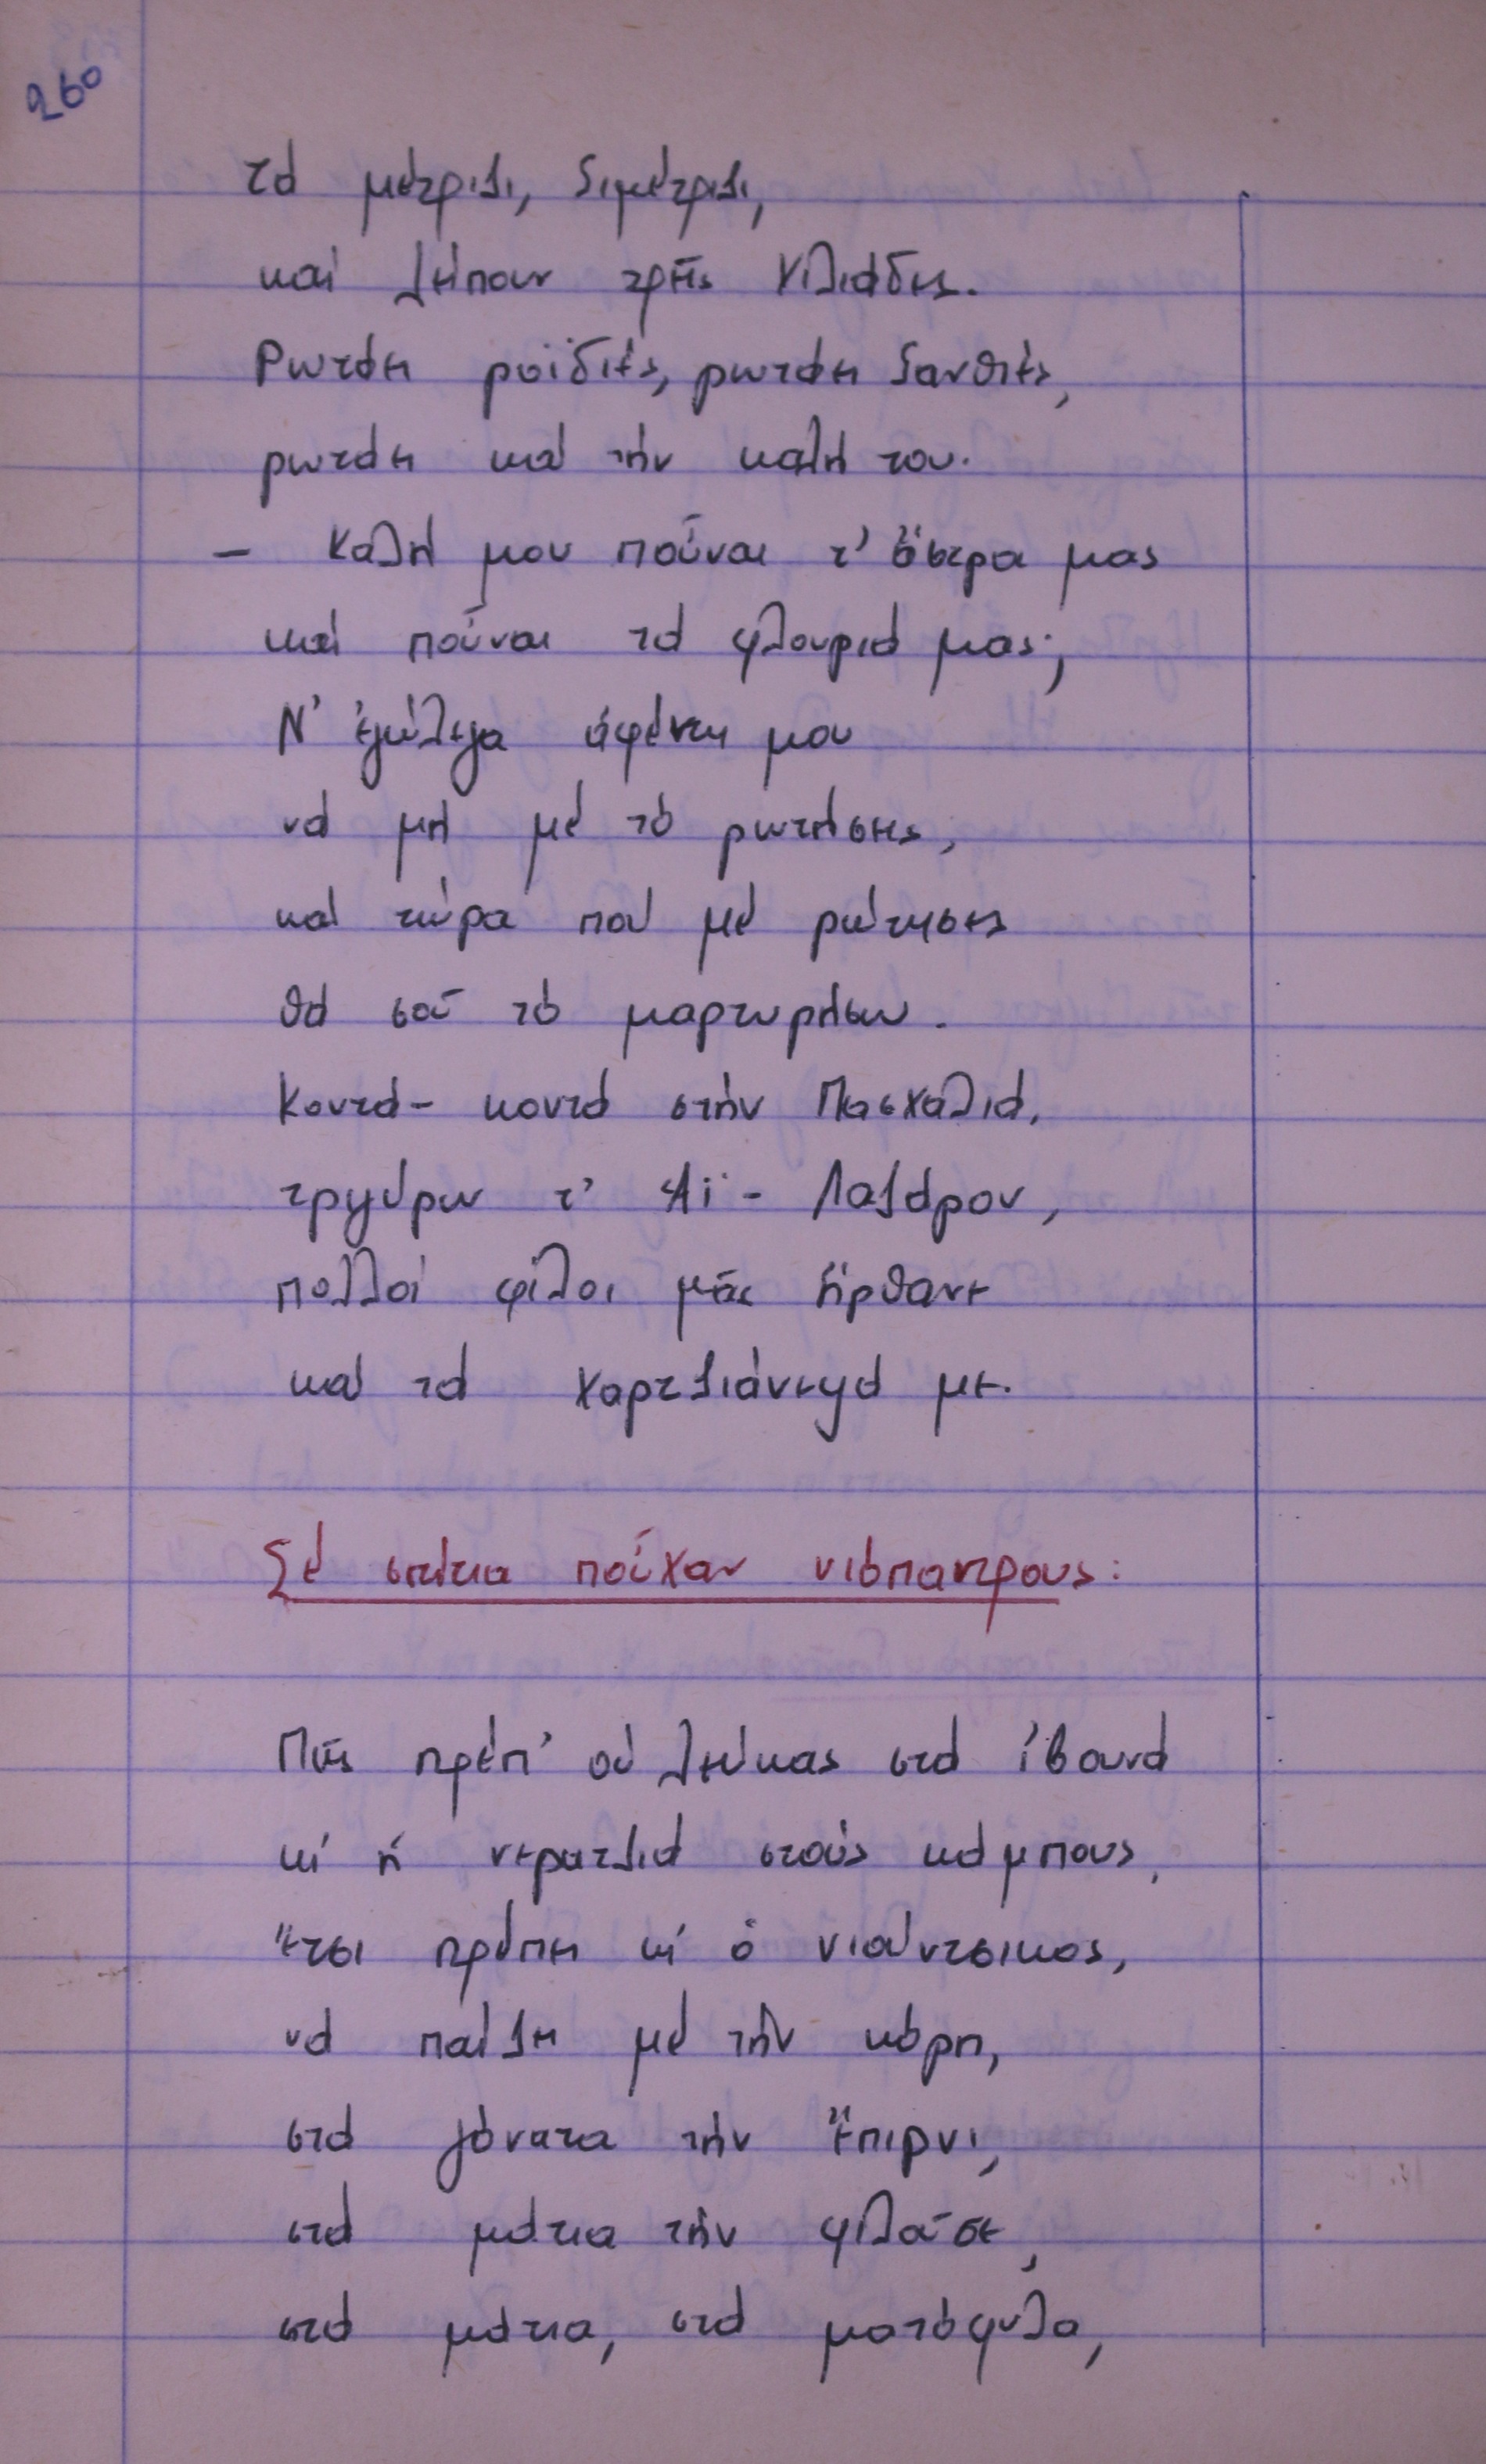 260
τά μέτριζι, ξιμέτριζι,
καί λείπουν τρεῖς χιλιάδες.
Ρωτάει ροϊδιές, ρωτάει ξανθιές,
ρωτάει καί τήν καλή του.
— Καλή μου ποῦναι τ' ἄστρα μας
καί ποῦναι τά φλουριά μας;
Ν' ἐγώλεγα ἀφέντη μου
νά μή μέ τό ρωτήσεις,
καί τώρα πού μέ ρώτησες
θά σοῦ τό μαρτυρήσω.
Κοντά - κοντά στήν Πασχαλιά,
τριγύρω τ' Αϊ - Λαζάρου,
πολλοί φίλοι μᾶς ἤρθανε
καί τά χαρτζιάνεψά με.
Σέ σπίτια ποὖχαν νιόπαντρους:
Πῶς πρέπ' οὐ λεύκας στά ἰβουνά
κι ἡ νερατζιά στούς κάμπους,
ἔτσι πρέπει κι ὁ νιούντσικος,
νά παίζει μέ τήν κόρη,
στά γόνατα τήν ἔπιρνι,
στά μάτια τήν φιλοῦσε,
στά μάτια, στά ματόφυλα,